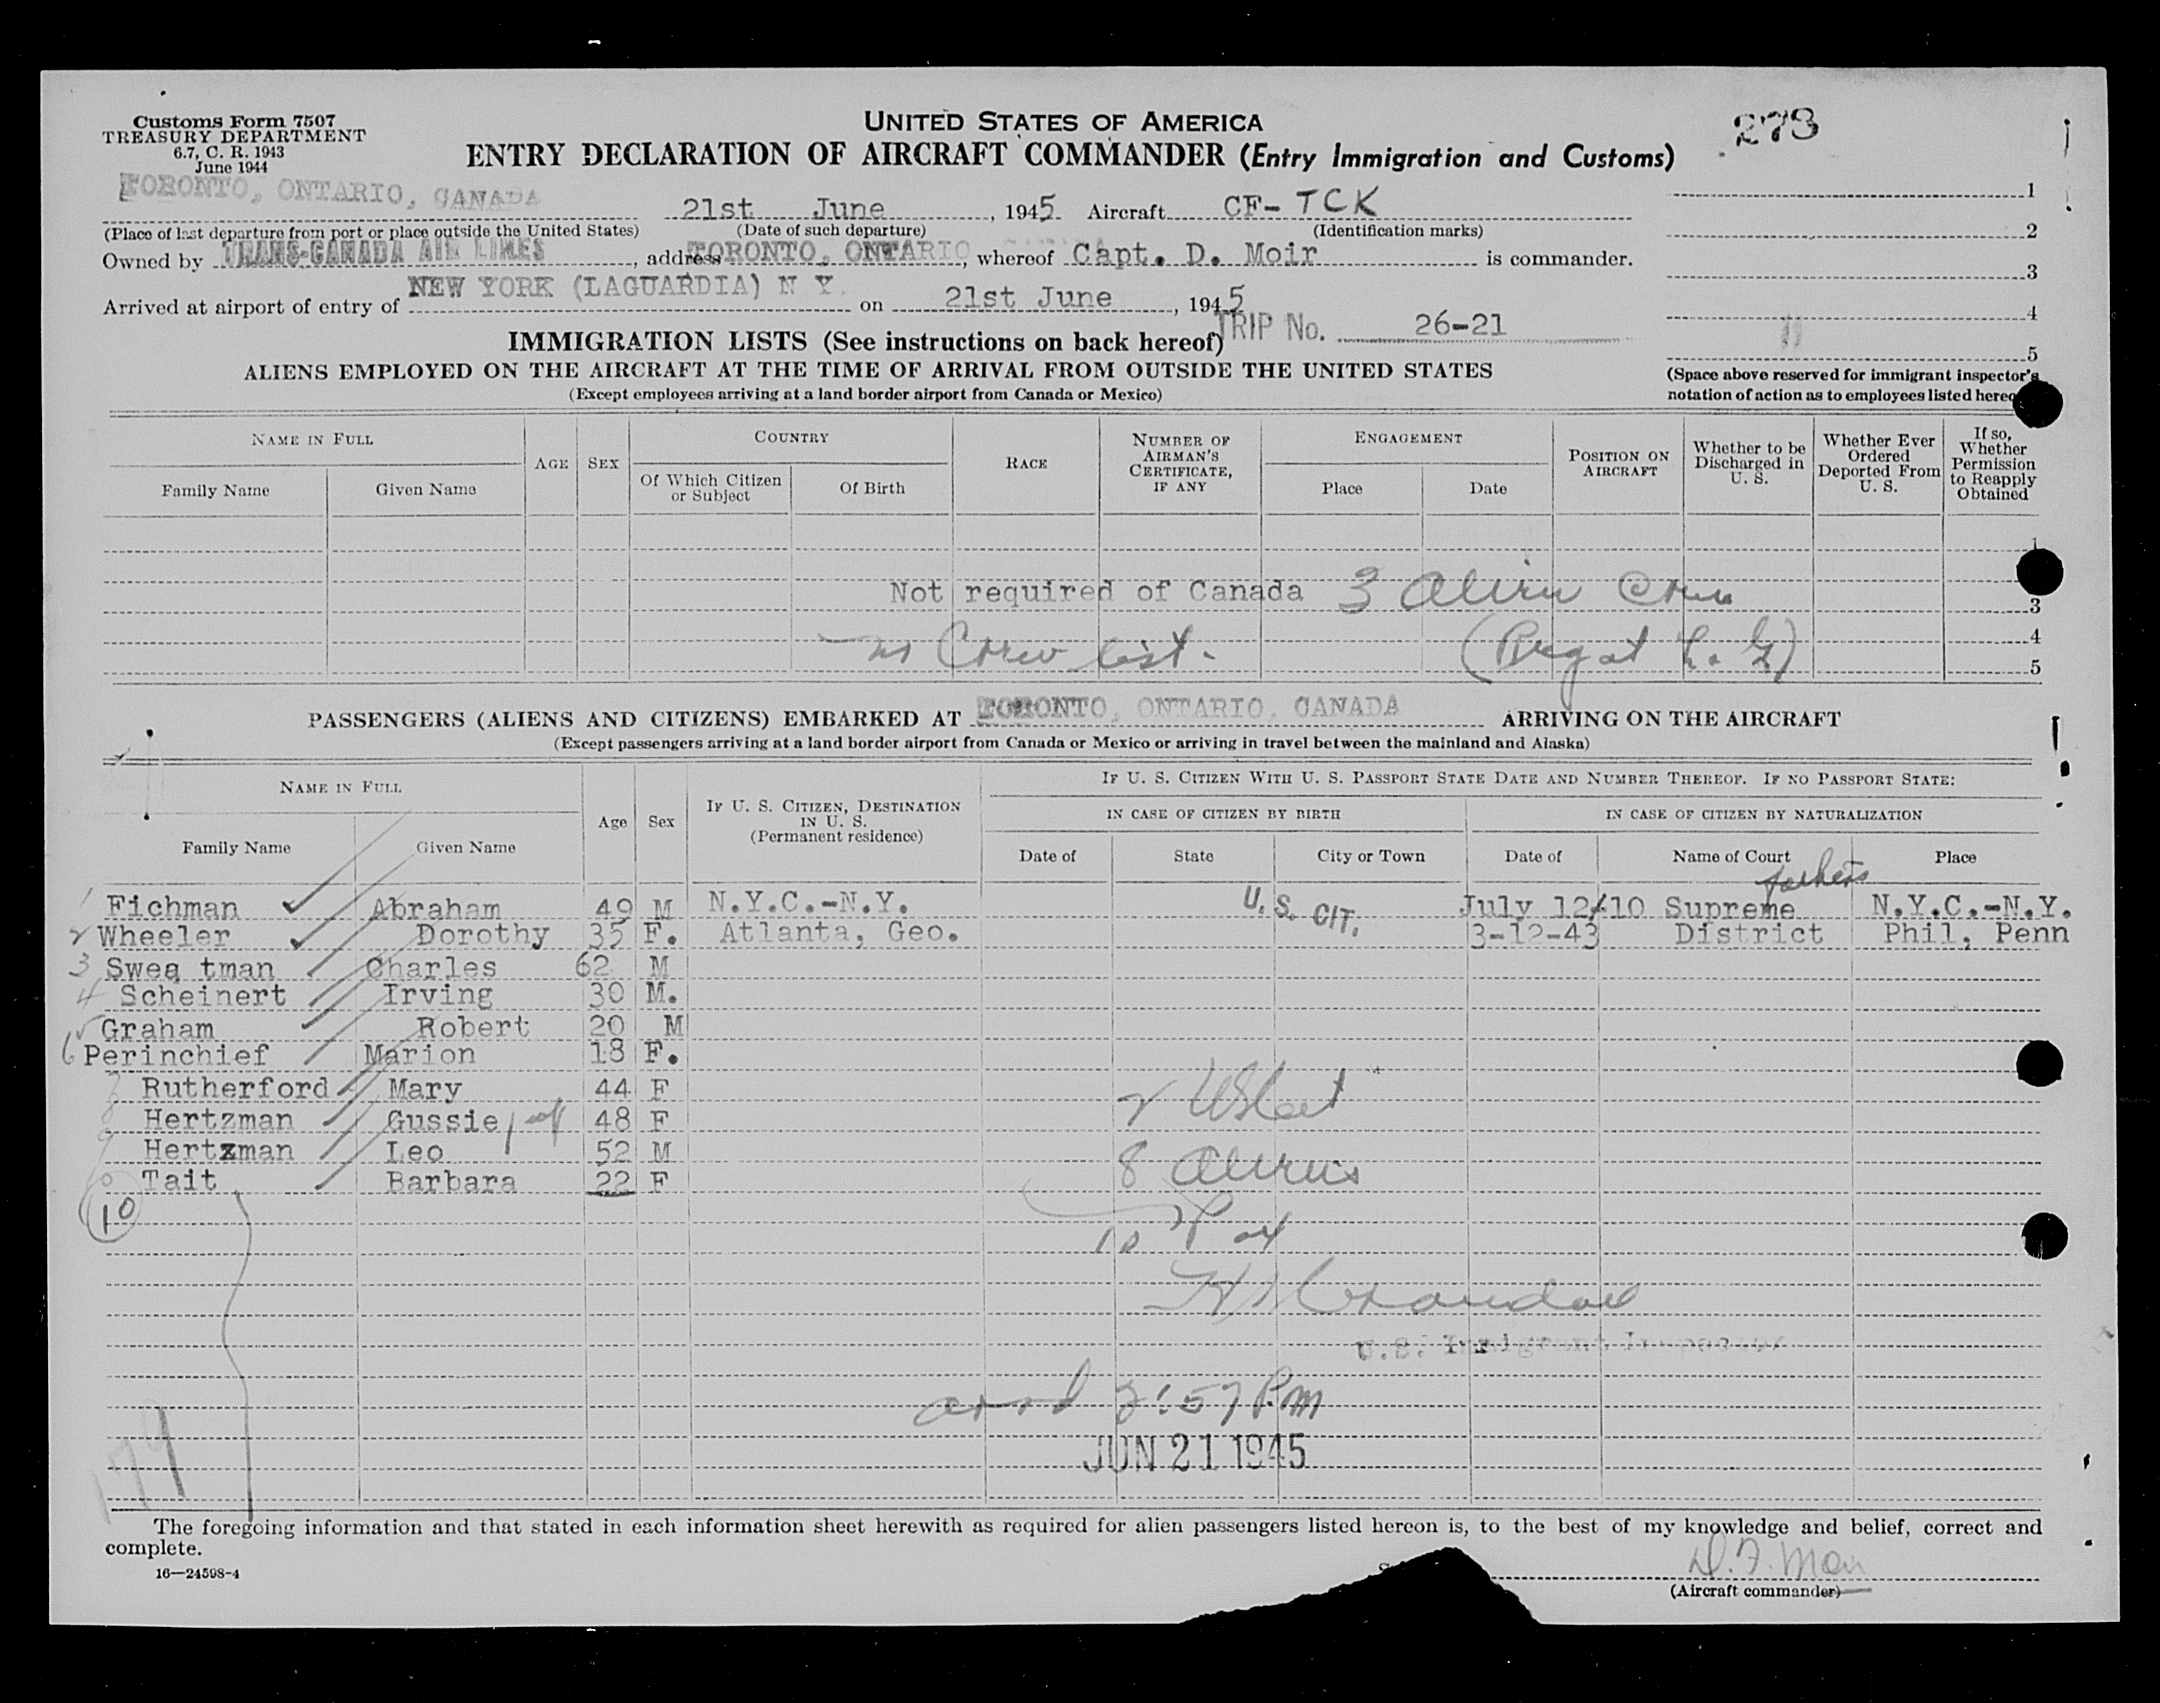 Customs Form 7507
TREASURY DEPARTMENT
6.7, C. R. 1943
June 1944
UNITED STATES OF AMERICA
273
ENTRY DECLARATION OF AIRCRAFT COMMANDER (Entry Immigration and Customs)
TORONTO, ONTARIO, CANADA
21st June, 1945 Aircraft CF-TCK
1
(Place of last departure from port or place outside the United States) (Date of such departure) (Identification marks)
2
Owned by TRANS-CANADA AIR LINES, address TORONTO, ONTARIO, whereof Capt. D. Moir is commander.
3
Arrived at airport of entry of NEW YORK (LAGUARDIA) N Y. on 21st June, 1945
4
TRIP No. 26-21
IMMIGRATION LISTS (See instructions on back hereof)
5
ALIENS EMPLOYED ON THE AIRCRAFT AT THE TIME OF ARRIVAL FROM OUTSIDE THE UNITED STATES
(Except employees arriving at a land border airport from Canada or Mexico)
(Space above reserved for immigrant inspector's
notation of action as to employees listed hereo
NAME IN FULL
Family Name Given Name
AGE
SEX
COUNTRY
Of Which Citizen or Subject
Of Birth
RACE
NUMBER OF AIRMAN'S CERTIFICATE, IF ANY
ENGAGEMENT
Place Date
POSITION ON AIRCRAFT
Whether to be Discharged in U. S.
Whether Ever Ordered Deported From U. S.
If so, Whether Permission to Reapply Obtained
1
Not required of Canada 3 Alien Crew
3
4
no Crew list. (Reg at L. G)
5
PASSENGERS (ALIENS AND CITIZENS) EMBARKED AT TORONTO, ONTARIO, CANADA ARRIVING ON THE AIRCRAFT
(Except passengers arriving at a land border airport from Canada or Mexico or arriving in travel between the mainland and Alaska)
NAME IN FULL
Family Name Given Name
Age
Sex
IF U. S. CITIZEN, DESTINATION IN U. S.
(Permanent residence)
IF U. S. CITIZEN WITH U. S. PASSPORT STATE DATE AND NUMBER THEREOF. IF NO PASSPORT STATE:
IN CASE OF CITIZEN BY BIRTH IN CASE OF CITIZEN BY NATURALIZATION
Date of State City or Town Date of Name of Court Place
fathers
1 Fichman Abraham 49 M N.Y.C.-N.Y. U.S. CIT. July 12/10 Supreme N.Y.C.-N.Y.
2 Wheeler Dorothy 35 F. Atlanta, Geo. 3-12-43 District Phil, Penn
3 Swea tman Charles 62 M
4 Scheinert Irving 30 M.
5 Graham Robert 20 M
6 Perinchief Marion 18 F.
7 Rutherford Mary 44 F
8 Hertzman Gussie 48 F
9 Hertzman Leo 52 M
0 Tait Barbara 22 F
2 US Cit
8 Aliens
10
10 Pax
U.S. Immigrant Inspector
arrd 2:57 P.M
JUN 21 1945
179
The foregoing information and that stated in each information sheet herewith as required for alien passengers listed hereon is, to the best of my knowledge and belief, correct and
complete.
16—24598-4
D. F. Moir
(Aircraft commander)